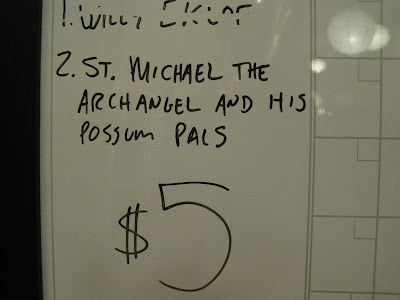 1. WILLY EKLOF
2. ST. MICHAEL THE
ARCHANGEL AND HIS
POSSUM PALS
$5